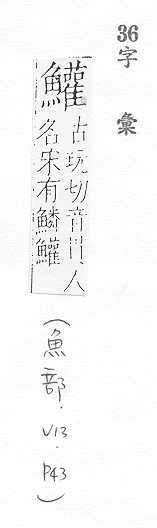 36字 彙
鱹 古玩切音人
名宋有鱗鱹
(魚部.V13.P43)